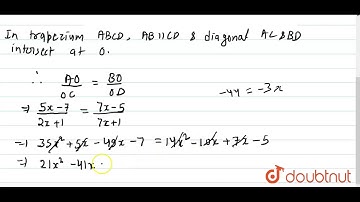 In trapezium ABCD, AB∥CD & diagonal AC & BD
intersect at O.
∴ AO/OC = BO/OD
-44 = -3x
⇒ 5x-7/2x+1 = 7x-5/7x+1
⇒ 35x² + 5x - 49x - 7 = 14x² - 10x + 7x - 5
⇒ 21x² - 41x
doubtnut